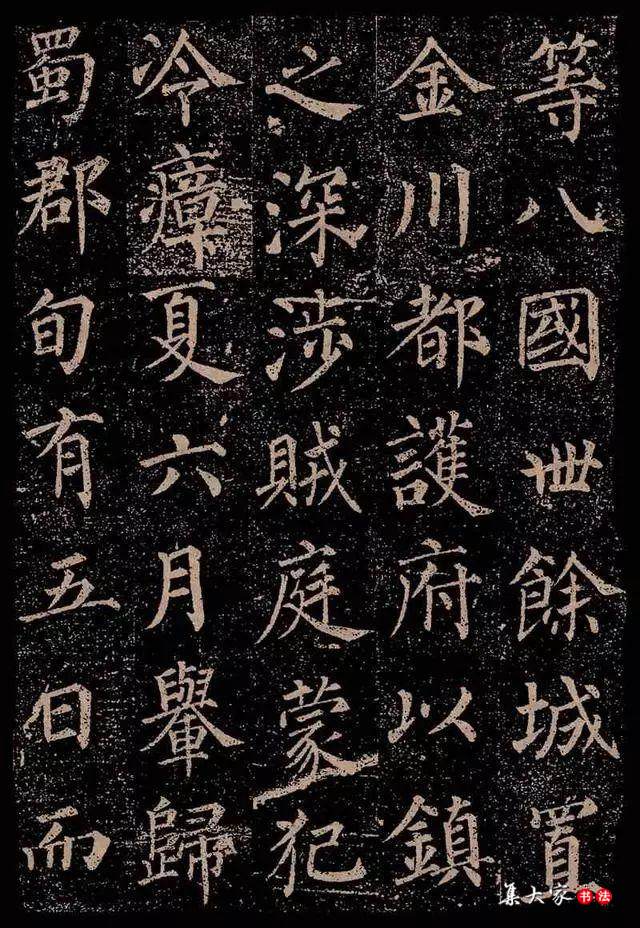 等八國卌餘城置
金川都護府以鎮
之深涉賊庭蒙犯
冷瘴夏六月轝歸
蜀郡旬有五日而
集大家书·法